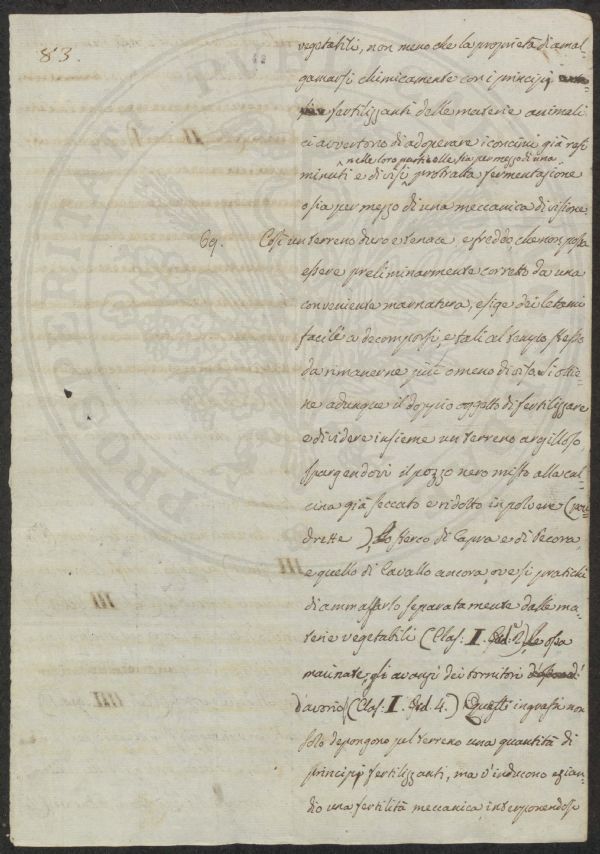 83.
vegetabili, non meno che la proprietà di amal-
gamarsi chimicamente con i principj
fertilizzanti delle materie animali
ci avvertono di adoperare i concimi già resi
nelle loro particelle sia per mezzo di una
minuti e divisi protratta fermentazione
o sia per mezzo di una meccanica divisione.
69. Così un terreno duro e tenace, e freddo, che non possa
essere preliminarmente corretto da una
conveniente marnatura, esige dei letami
facili a decomporsi, e tali al tempo stesso
da rimanerne più o meno diviso. Si ottie-
ne adunque il doppio oggetto di fertilizzare
e dividere insieme un terreno argilloso,
spargendovi il pozzo nero misto alla cal-
cina già seccato e ridotto in polvere (pou-
drette), lo sterco di Capra e di Pecora,
e quello di Cavallo ancora, ove si pratichi
di ammassarlo separatamente dalle ma-
terie vegetabili (Clas: I. Ord: 2) le ossa
macinate, gli avanzi dei tornitori
d'avorio (Clas: I. Ord. 4.) Questi ingrassi non
solo depongono sul terreno una quantità di
principj fertilizzanti, ma v'inducono ezian-
dio una fertilità meccanica, interponendosi